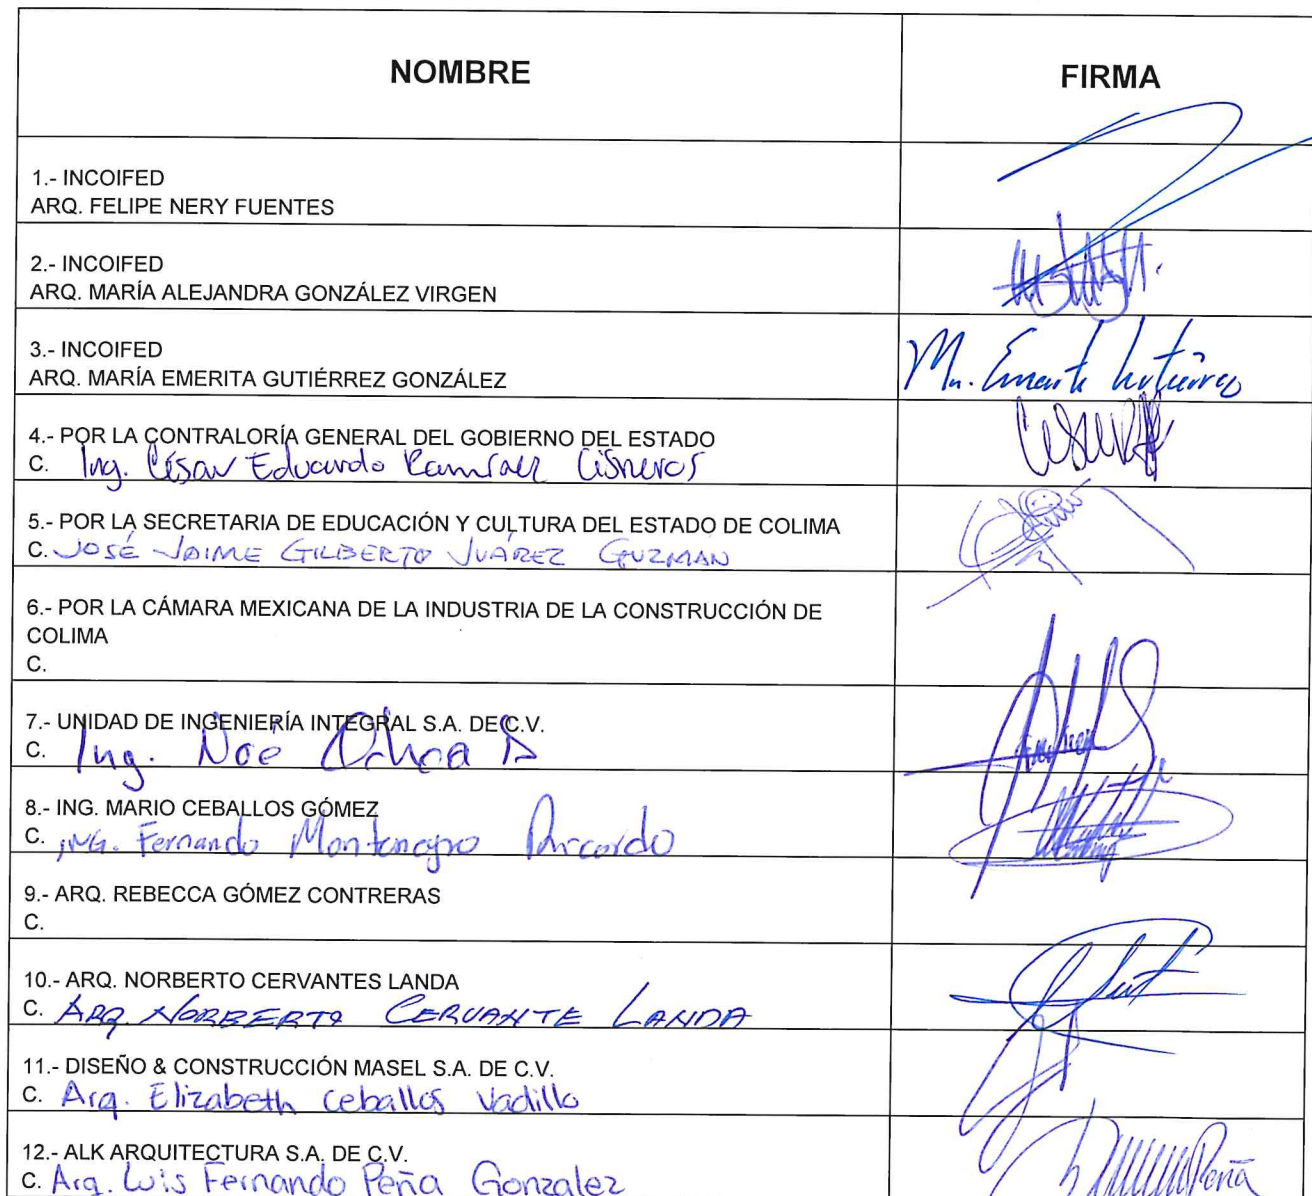 NOMBRE
FIRMA
1.- INCOIFED
ARQ. FELIPE NERY FUENTES
2.- INCOIFED
ARQ. MARÍA ALEJANDRA GONZÁLEZ VIRGEN
3.- INCOIFED
ARQ. MARÍA EMERITA GUTIÉRREZ GONZÁLEZ
4.- POR LA CONTRALORÍA GENERAL DEL GOBIERNO DEL ESTADO
C. Ing. César Eduardo Ramírez Cisneros
5.- POR LA SECRETARIA DE EDUCACIÓN Y CULTURA DEL ESTADO DE COLIMA
C. JOSÉ JAIME GILBERTO JUÁREZ GUZMAN
6.- POR LA CÁMARA MEXICANA DE LA INDUSTRIA DE LA CONSTRUCCIÓN DE
COLIMA
C.
7.- UNIDAD DE INGENIERÍA INTEGRAL S.A. DE C.V.
C. Ing. Noé Ochoa
8.- ING. MARIO CEBALLOS GÓMEZ
C. ING. Fernando Montenegro
9.- ARQ. REBECCA GÓMEZ CONTRERAS
C.
10.- ARQ. NORBERTO CERVANTES LANDA
C. ARQ. NORBERTO CERVANTE LANDA
11.- DISEÑO & CONSTRUCCIÓN MASEL S.A. DE C.V.
C. Arq. Elizabeth Ceballos Vadillo
12.- ALK ARQUITECTURA S.A. DE C.V.
C. Arq. Luis Fernando Peña Gonzalez
Peña